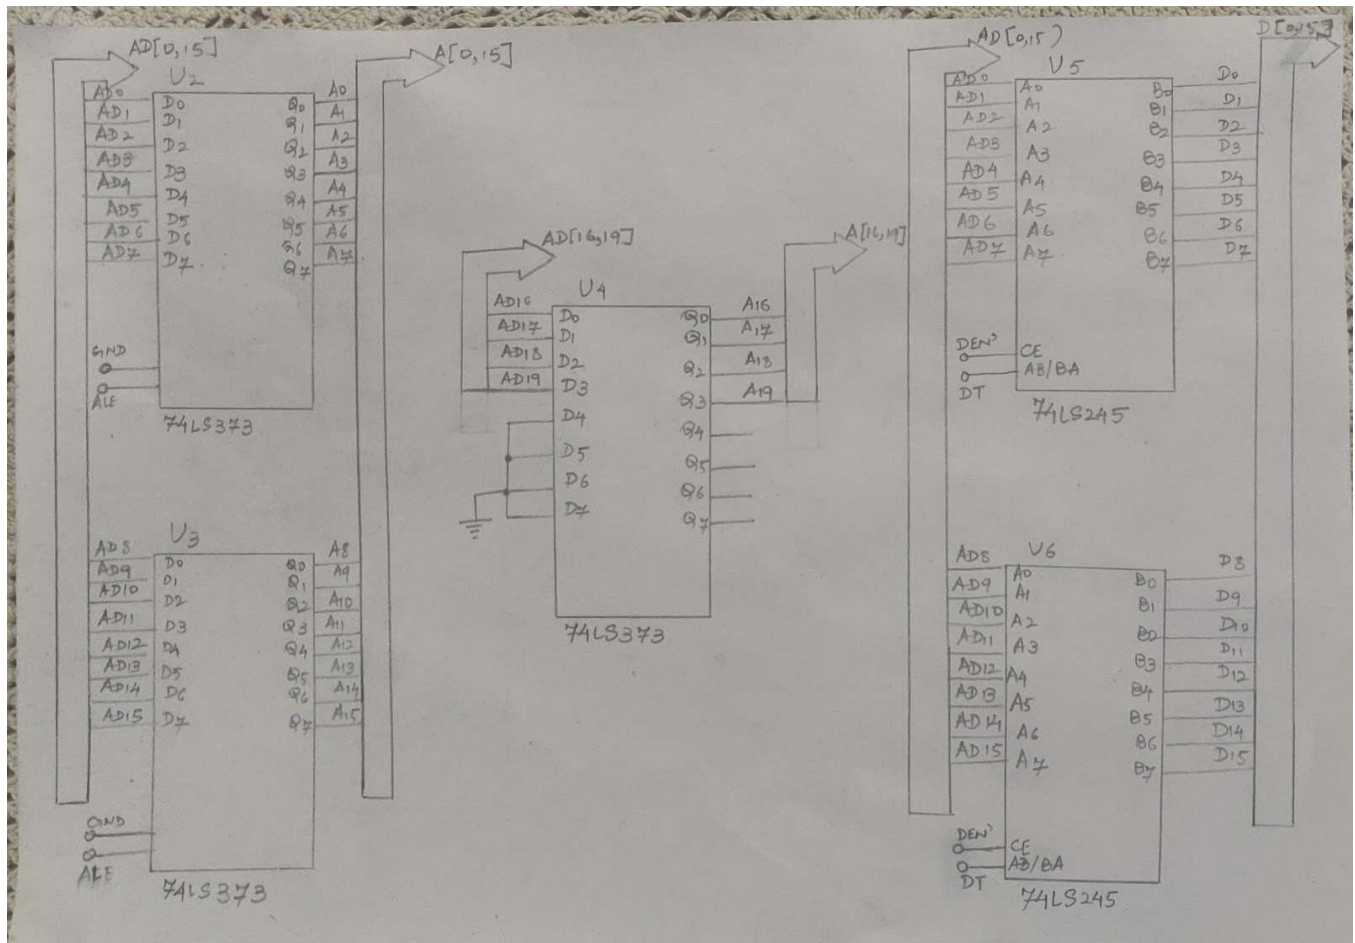 AD[0,15]
U2
AD0
AD1
AD2
AD3
AD4
AD5
AD6
AD7
D0
D1
D2
D3
D4
D5
D6
D7
Q0
Q1
Q2
Q3
Q4
Q5
Q6
Q7
A0
A1
A2
A3
A4
A5
A6
A7
A[0,15]
GND
ALE
74LS373
U3
AD8
AD9
AD10
AD11
AD12
AD13
AD14
AD15
D0
D1
D2
D3
D4
D5
D6
D7
Q0
Q1
Q2
Q3
Q4
Q5
Q6
Q7
A8
A9
A10
A11
A12
A13
A14
A15
GND
ALE
74LS373
AD[16,19]
U4
AD16
AD17
AD18
AD19
D0
D1
D2
D3
D4
D5
D6
D7
Q0
Q1
Q2
Q3
Q4
Q5
Q6
Q7
A16
A17
A18
A19
A[16,19]
74LS373
AD[0,15)
U5
AD0
AD1
AD2
AD3
AD4
AD5
AD6
AD7
A0
A1
A2
A3
A4
A5
A6
A7
B0
B1
B2
B3
B4
B5
B6
B7
D0
D1
D2
D3
D4
D5
D6
D7
D[0,15]
DEN'
DT
CE
AB/BA
74LS245
U6
AD8
AD9
AD10
AD11
AD12
AD13
AD14
AD15
A0
A1
A2
A3
A4
A5
A6
A7
B0
B1
B2
B3
B4
B5
B6
B7
D8
D9
D10
D11
D12
D13
D14
D15
DEN'
DT
CE
AB/BA
74LS245